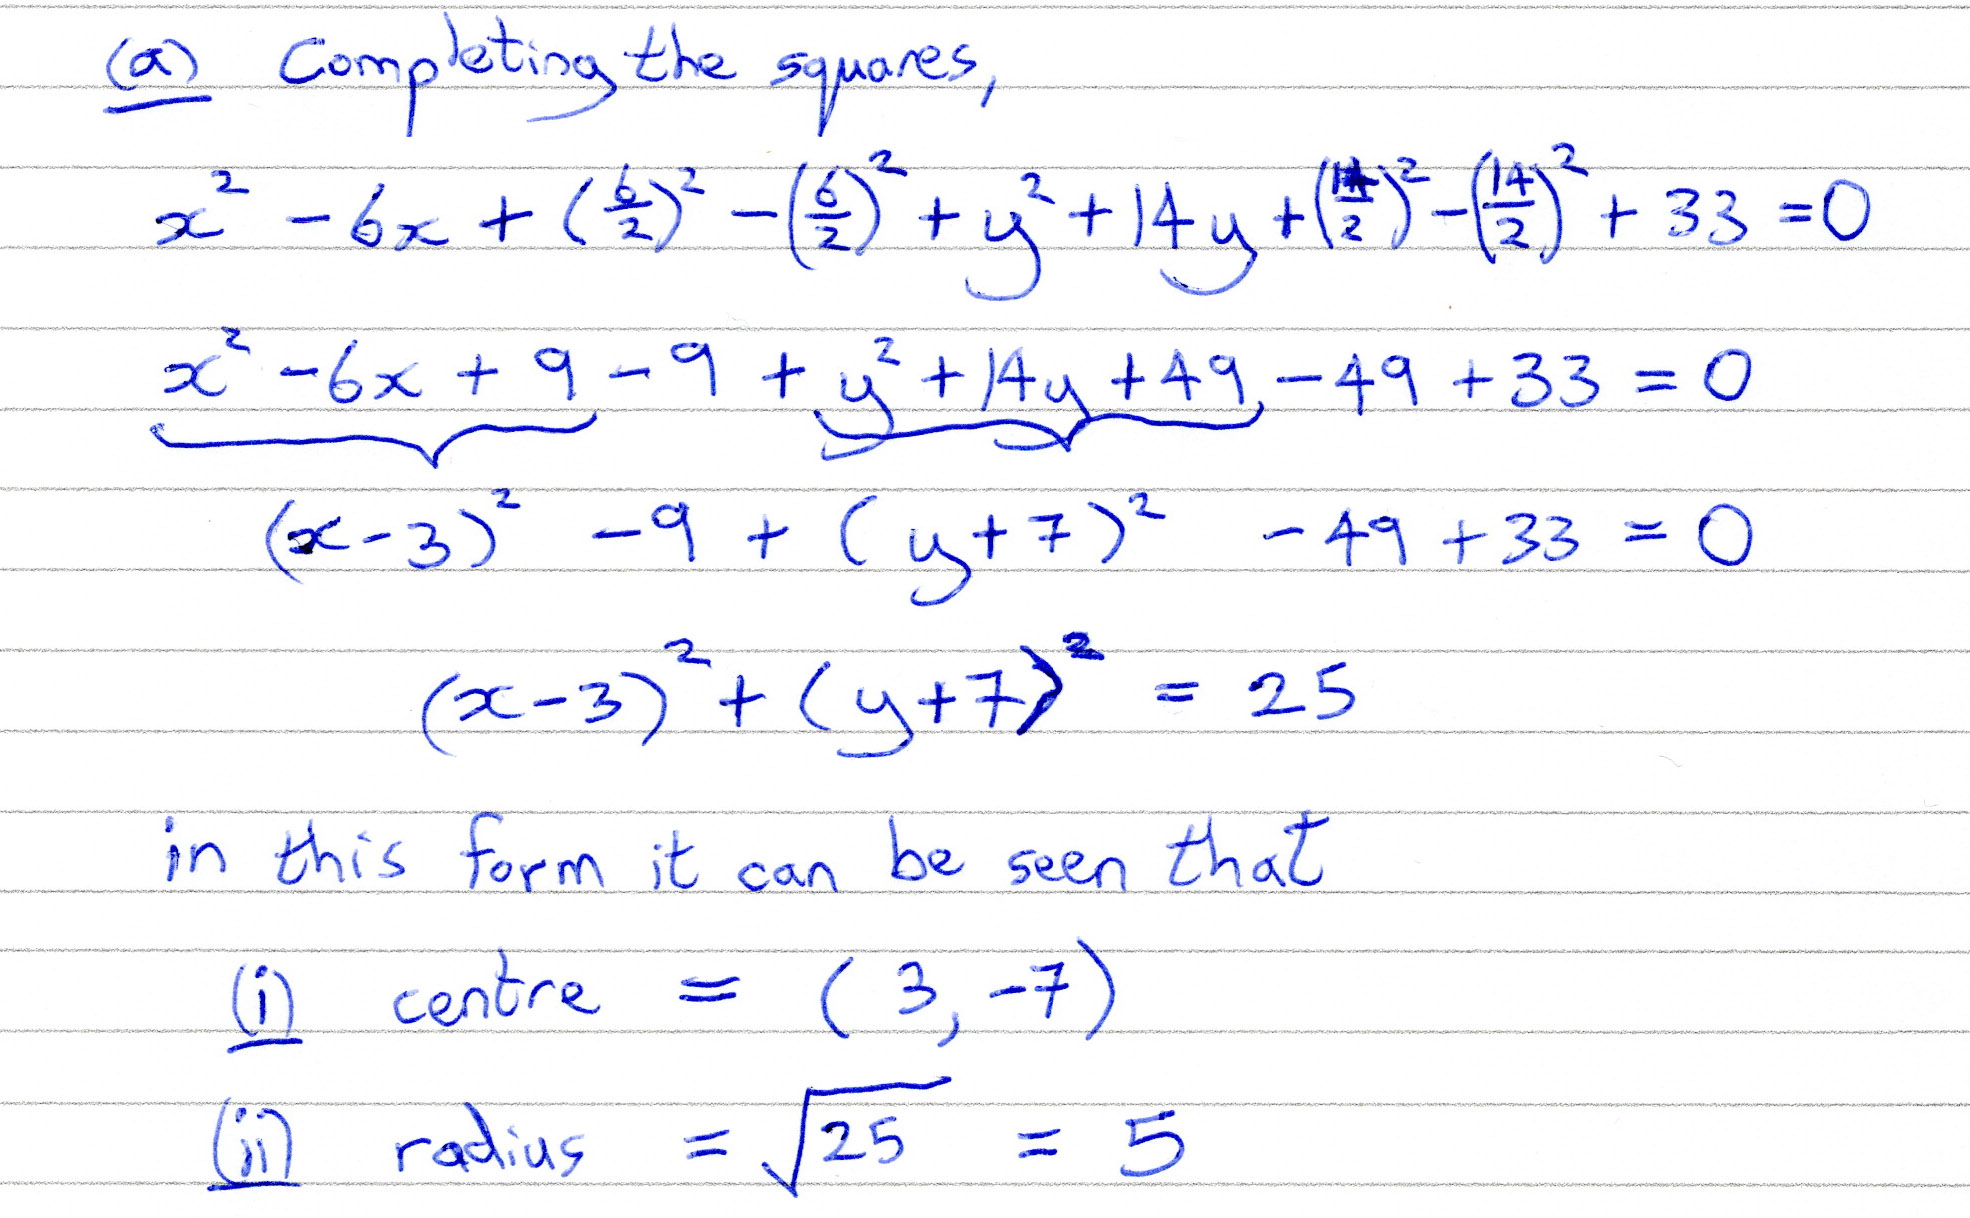 (a) Completing the squares,
x² - 6x + (6/2)² - (6/2)² + y² + 14y + (14/2)² - (14/2)² + 33 = 0
x² - 6x + 9 - 9 + y² + 14y + 49 - 49 + 33 = 0
(x-3)² - 9 + (y+7)² - 49 + 33 = 0
(x-3)² + (y+7)² = 25
in this form it can be seen that
(i) centre = (3, -7)
(ii) radius = √25 = 5